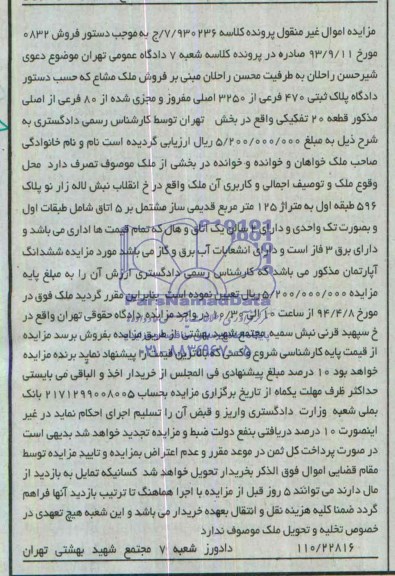 مزایده اموال غیر منقول پرونده کلاسه ۷/۹۳۰۲۳۶/ج به موجب دستور فروش ۰۸۳۲
مورخ ۹۳/۹/۱۱ صادره در پرونده کلاسه شعبه ۷ دادگاه عمومی تهران موضوع دعوی
شیرحسن راحلان به طرفیت محسن راحلان مبنی بر فروش ملک مشاع که حسب دستور
دادگاه پلاک ثبتی ۴۷۰ فرعی از ۳۲۵۰ اصلی مفروز و مجزی شده از ۸۰ فرعی از اصلی
مذکور قطعه ۲۰ تفکیکی واقع در بخش تهران توسط کارشناس رسمی دادگستری به
شرح ذیل به مبلغ ۵/۲۰۰/۰۰۰/۰۰۰ ریال ارزیابی گردیده است نام و نام خانوادگی
صاحب ملک خواهان و خوانده و خوانده در بخشی از ملک موصوف تصرف دارد محل
وقوع ملک و توصیف اجمالی و کاربری آن ملک واقع در خ انقلاب نبش لاله زار نو پلاک
۵۹۶ طبقه اول به متراژ ۱۲۵ متر مربع قدیمی ساز مشتمل بر ۵ اتاق شامل طبقات اول
و بصورت تک واحدی و دارای سالن یک اتاق و هال که تمام قیمت ها اداری می باشد و
دارای برق ۳ فاز است و دارای انشعابات آب برق و گاز می باشد مورد مزایده ششدانگ
آپارتمان مذکور می باشد که کارشناس رسمی دادگستری ارزش آن را به مبلغ پایه
مزایده ۵/۲۰۰/۰۰۰/۰۰۰ ریال تعیین نموده است بنابراین مقرر گردید ملک فوق در
مورخ ۹۴/۴/۸ از ساعت ۱۰ الی ۱۰/۳۰ در واحد مزایده دادگاه حقوقی تهران واقع در
خ سپهبد قرنی نبش سمیه مجتمع شهید بهشتی از طریق مزایده بفروش برسد مزایده
از قیمت پایه کارشناسی شروع وکسی که بالاترین قیمت را پیشنهاد نماید برنده مزایده
خواهد بود ۱۰ درصد مبلغ پیشنهادی فی المجلس از خریدار اخذ و الباقی می بایستی
حداکثر ظرف مهلت یکماه از تاریخ برگزاری مزایده بحساب ۲۱۷۱۲۹۹۰۰۸۰۰۵ بانک
ملی شعبه وزارت دادگستری واریز و قبض آن را تسلیم اجرای احکام نماید در غیر
اینصورت ۱۰ درصد دریافتی بنفع دولت ضبط و مزایده تجدید خواهد شد بدیهی است
در صورت پرداخت کل ثمن در موعد مقرر و عدم اعتراض بمزایده و تایید مزایده توسط
مقام قضایی اموال فوق الذکر بخریدار تحویل خواهد شد کسانیکه تمایل به بازدید از
مال دارند می توانند ۵ روز قبل از مزایده با اجرا هماهنگ تا ترتیب بازدید آنها فراهم
گردد ضمنا کلیه هزینه نقل و انتقال بعهده خریدار می باشد و این شعبه هیچ تعهدی در
خصوص تخلیه و تحویل ملک موصوف ندارد
۱۱۰/۲۲۸۱۶ دادورز شعبه ۷ مجتمع شهید بهشتی تهران